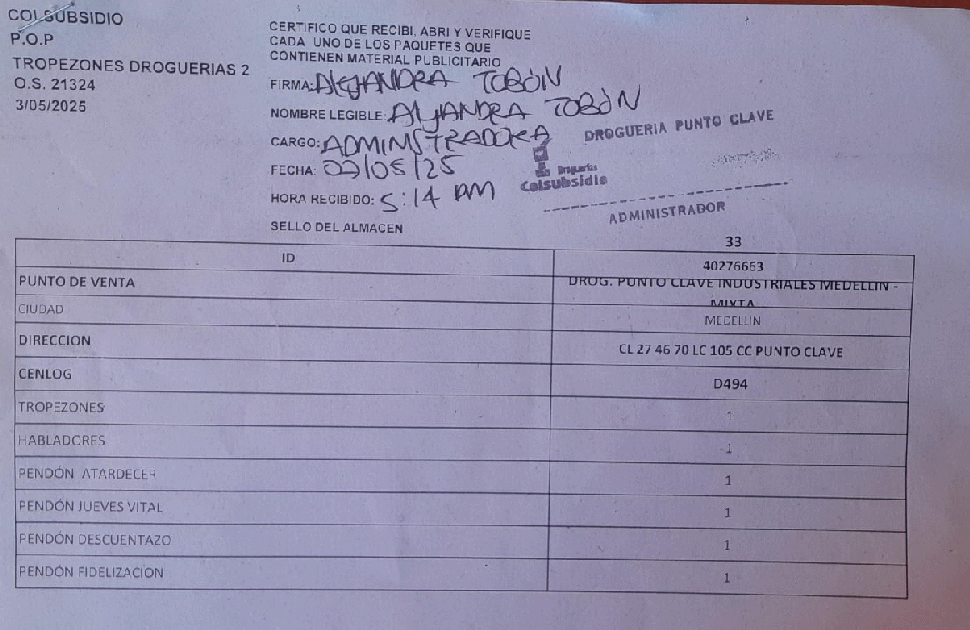 COLSUBSIDIO
P.O.P
TROPEZONES DROGUERIAS 2
O.S. 21324
3/05/2025
CERTIFICO QUE RECIBI, ABRI Y VERIFIQUE
CADA UNO DE LOS PAQUETES QUE
CONTIENEN MATERIAL PUBLICITARIO
FIRMA: ALEJANDRA TOBÓN
NOMBRE LEGIBLE: ALJANDRA TOBÓN
CARGO: ADMINISTRADORA
FECHA: 09/05/25
HORA RECIBIDO: 5:14 PM
SELLO DEL ALMACEN
DROGUERIA PUNTO CLAVE
Droguerías
Colsubsidio
ADMINISTRADOR
33
ID 40276653
PUNTO DE VENTA DROG. PUNTO CLAVE INDUSTRIALES MEDELLIN -
MIXTA
CIUDAD MEDELLIN
DIRECCION CL 27 46 70 LC 105 CC PUNTO CLAVE
CENLOG D494
TROPEZONES 1
HABLADORES 1
PENDÓN ATARDECER 1
PENDÓN JUEVES VITAL 1
PENDÓN DESCUENTAZO 1
PENDÓN FIDELIZACION 1